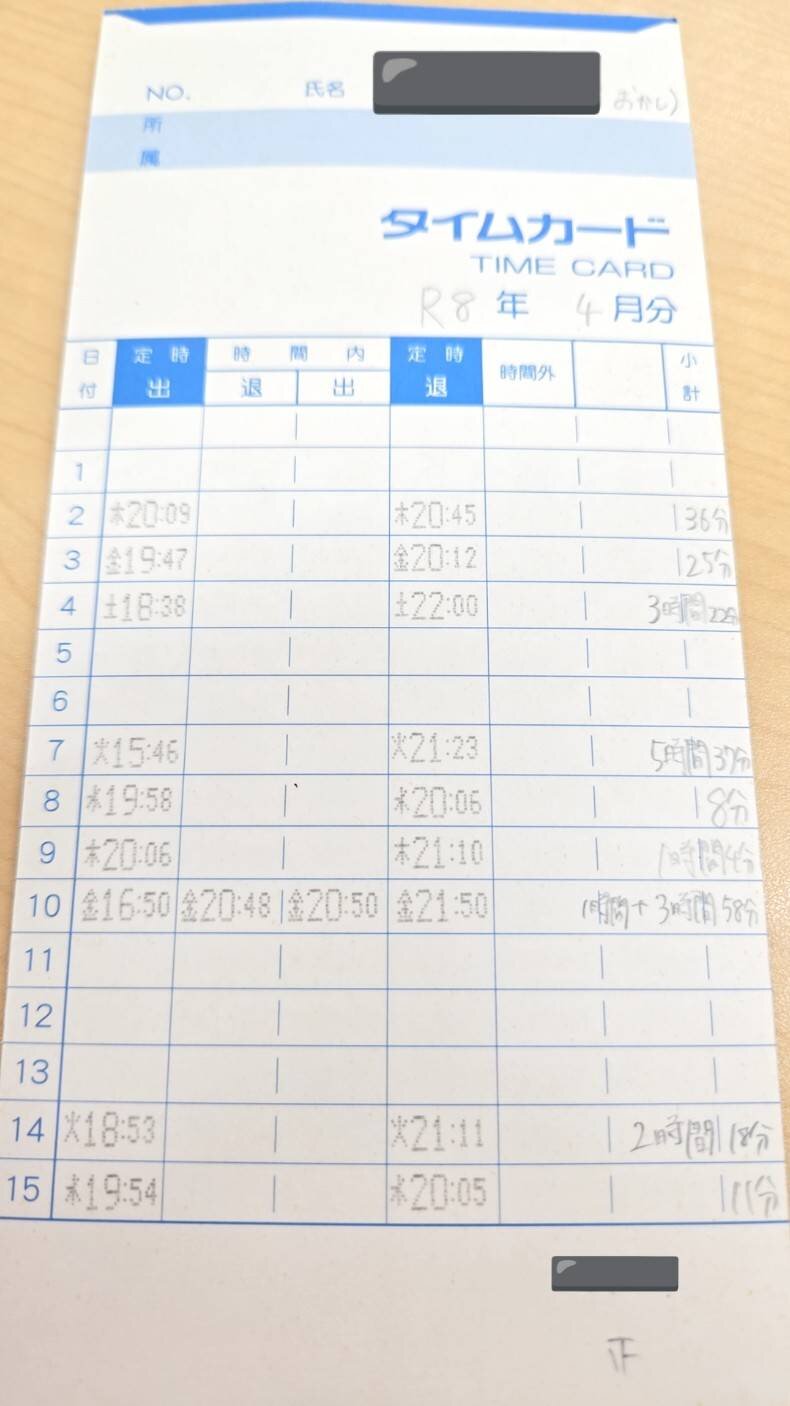 NO. 氏名 おかし)
所属
タイムカード
TIME CARD
R8年 4月分
日付 定時出 時間内 退 出 定時退 時間外 小計
1
2 木20:09 木20:45 36分
3 金19:47 金20:12 25分
4 土18:38 土22:00 3時間22分
5
6
7 火15:46 火21:23 5時間37分
8 水19:58 水20:06 8分
9 木20:06 木21:10 1時間4分
10 金16:50 金20:48 金20:50 金21:50 1時間+3時間58分
11
12
13
14 火18:53 火21:11 2時間18分
15 水19:54 水20:05 11分
正